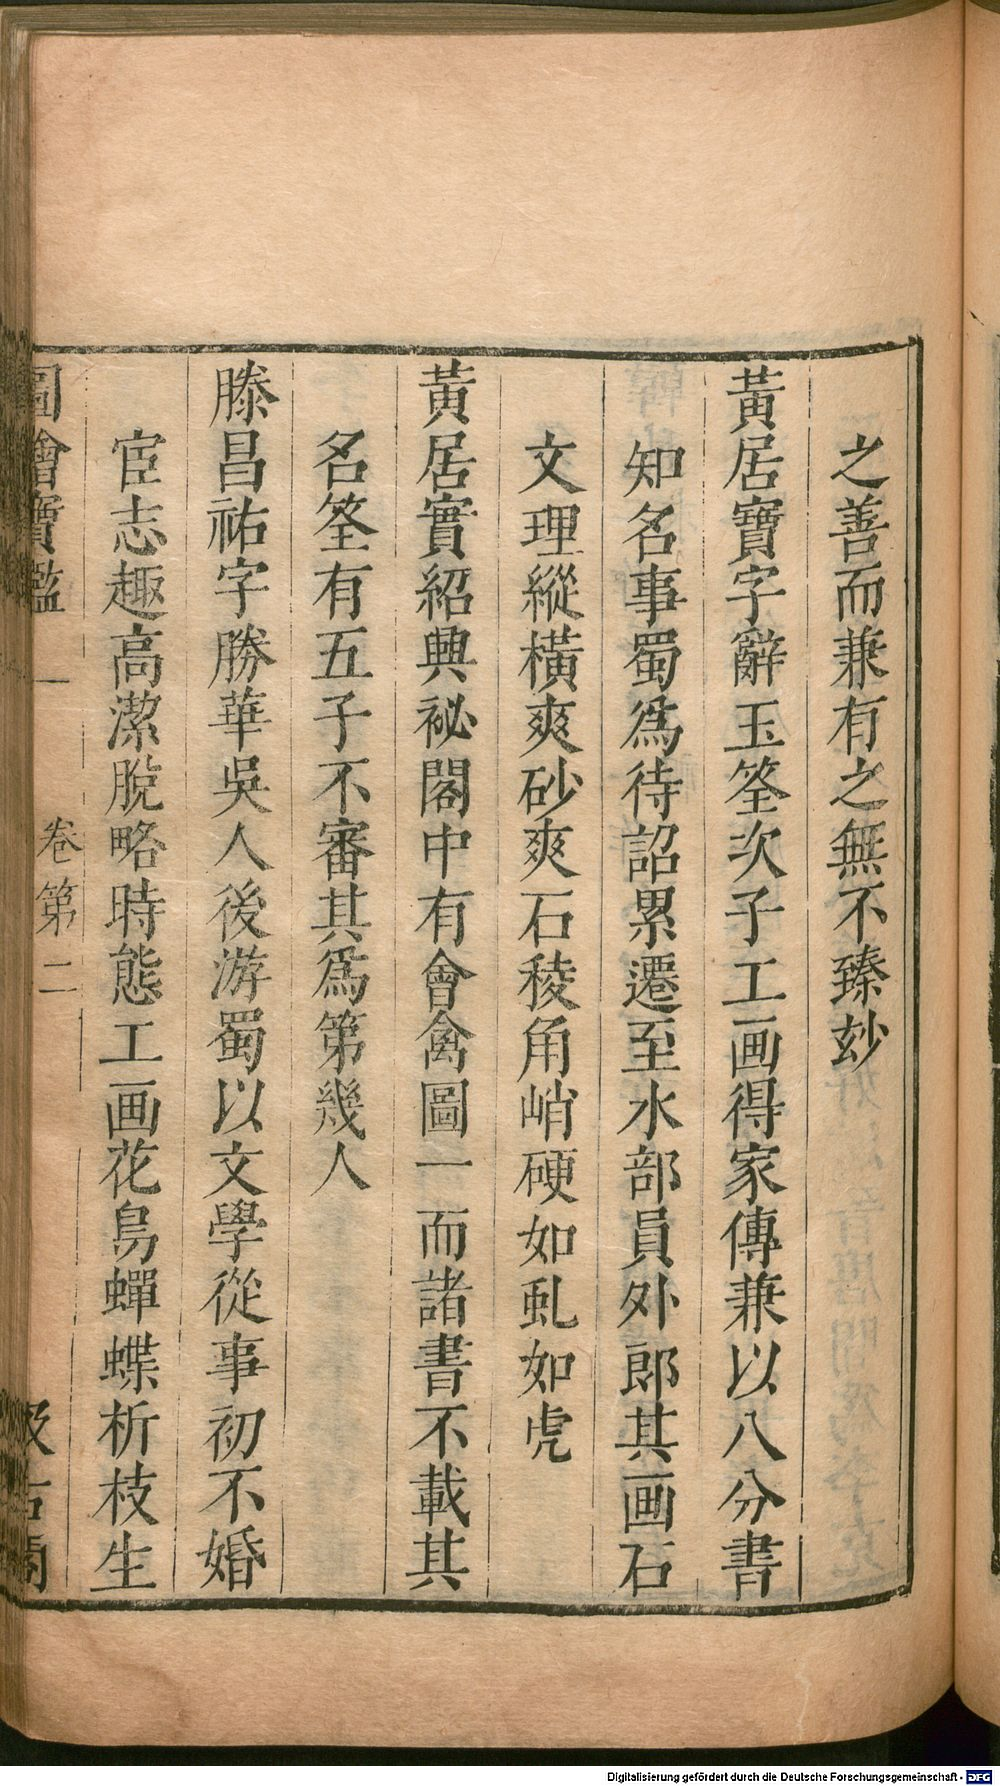 之善而兼有之無不臻玅
黃居寶字辭玉筌次子工画得家傳兼以八分書
知名事蜀爲待詔累遷至水部員外郎其画石
文理縱橫爽砂爽石稜角峭硬如虬如虎
黃居實紹興祕閣中有會禽圖一而諸書不載其
名筌有五子不審其爲第幾人
滕昌祐字勝華吳人後游蜀以文學從事初不婚
宦志趣高潔脫略時態工画花鳥蟬蝶析枝生
圖繪寶鑑 卷第二 汲古閣
Digitalisierung gefördert durch die Deutsche Forschungsgemeinschaft - DFG